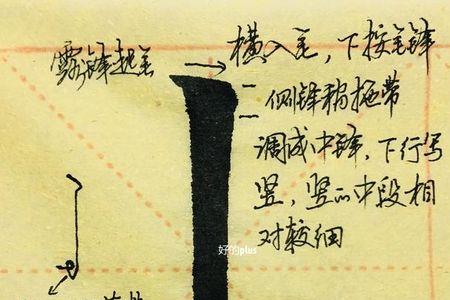 露锋起笔
横入笔,下按笔锋
侧锋稍拖带
调成中锋,下行写
竖,竖的中段相
对较细
好的plus